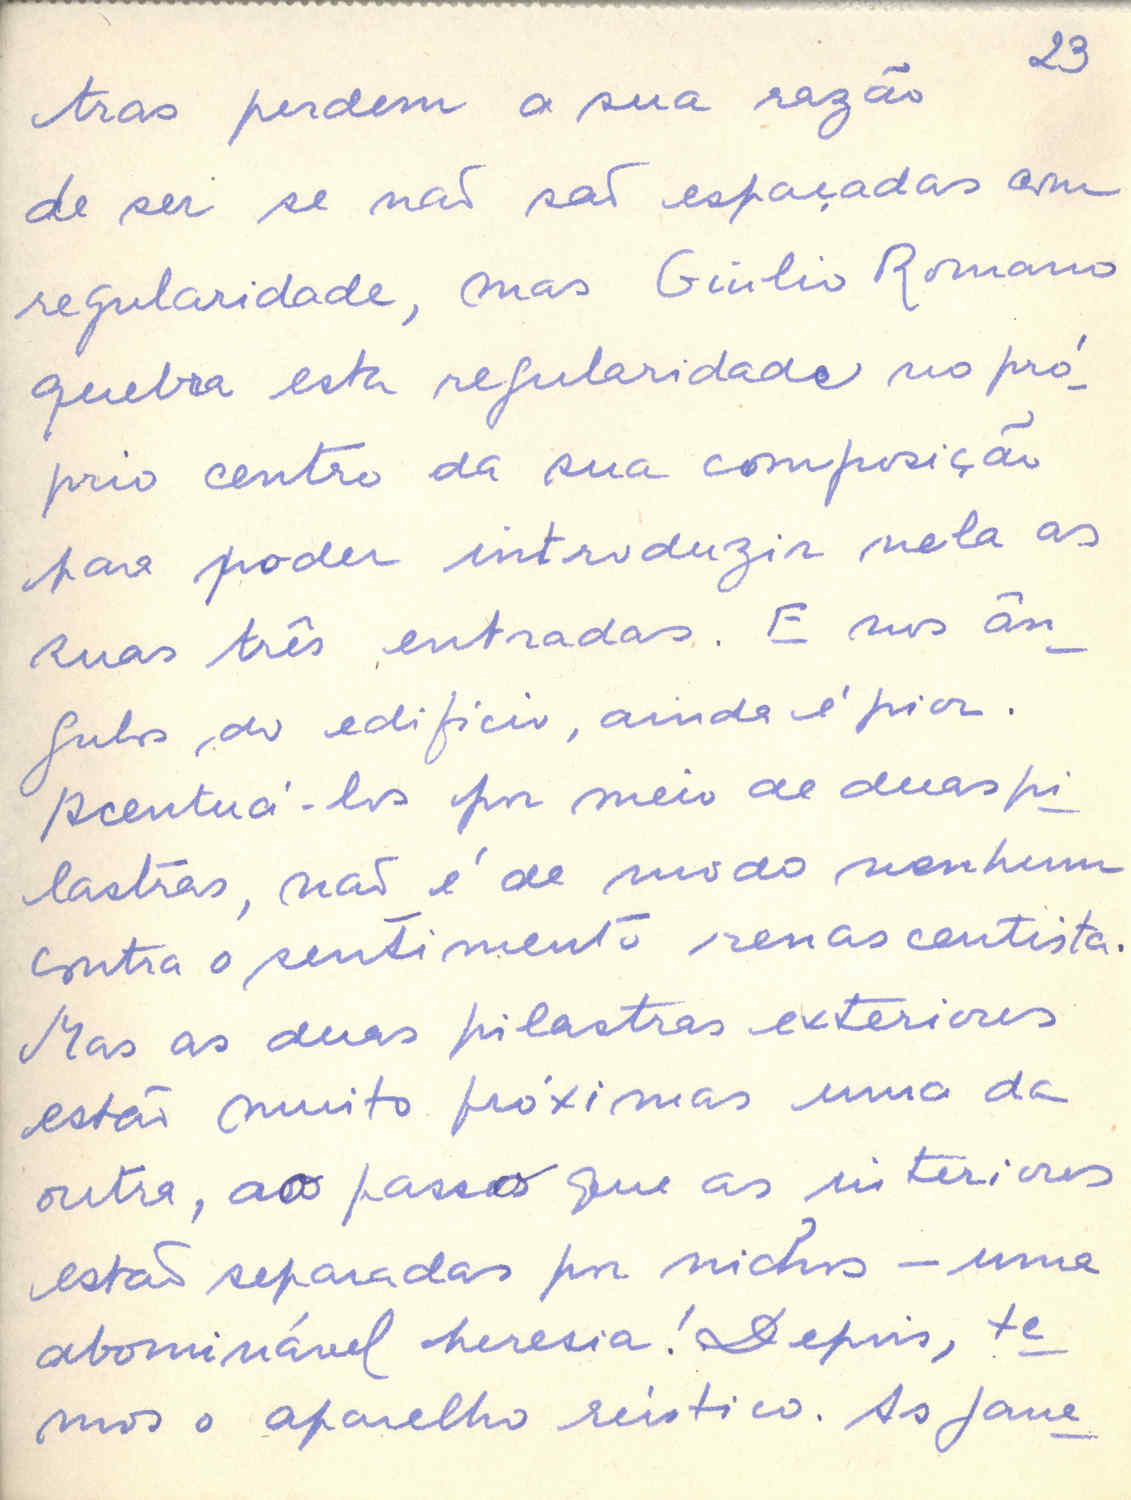 23
tras perdem a sua razão
de ser se não são espaçadas com
regularidade, mas Giulio Romano
quebra esta regularidade no pró-
prio centro da sua composição
para poder introduzir nela as
suas três entradas. E nos ân-
gulos do edifício, ainda é pior.
Acentuá-los por meio de duas pi-
lastras, não é de modo nenhum
contra o sentimento renascentista.
Mas as duas pilastras exteriores
estão muito próximas uma da
outra, ao passo que as interiores
estão separadas por nichos — uma
abominável heresia! Depois, te-
mos o aparelho rústico. As jane-